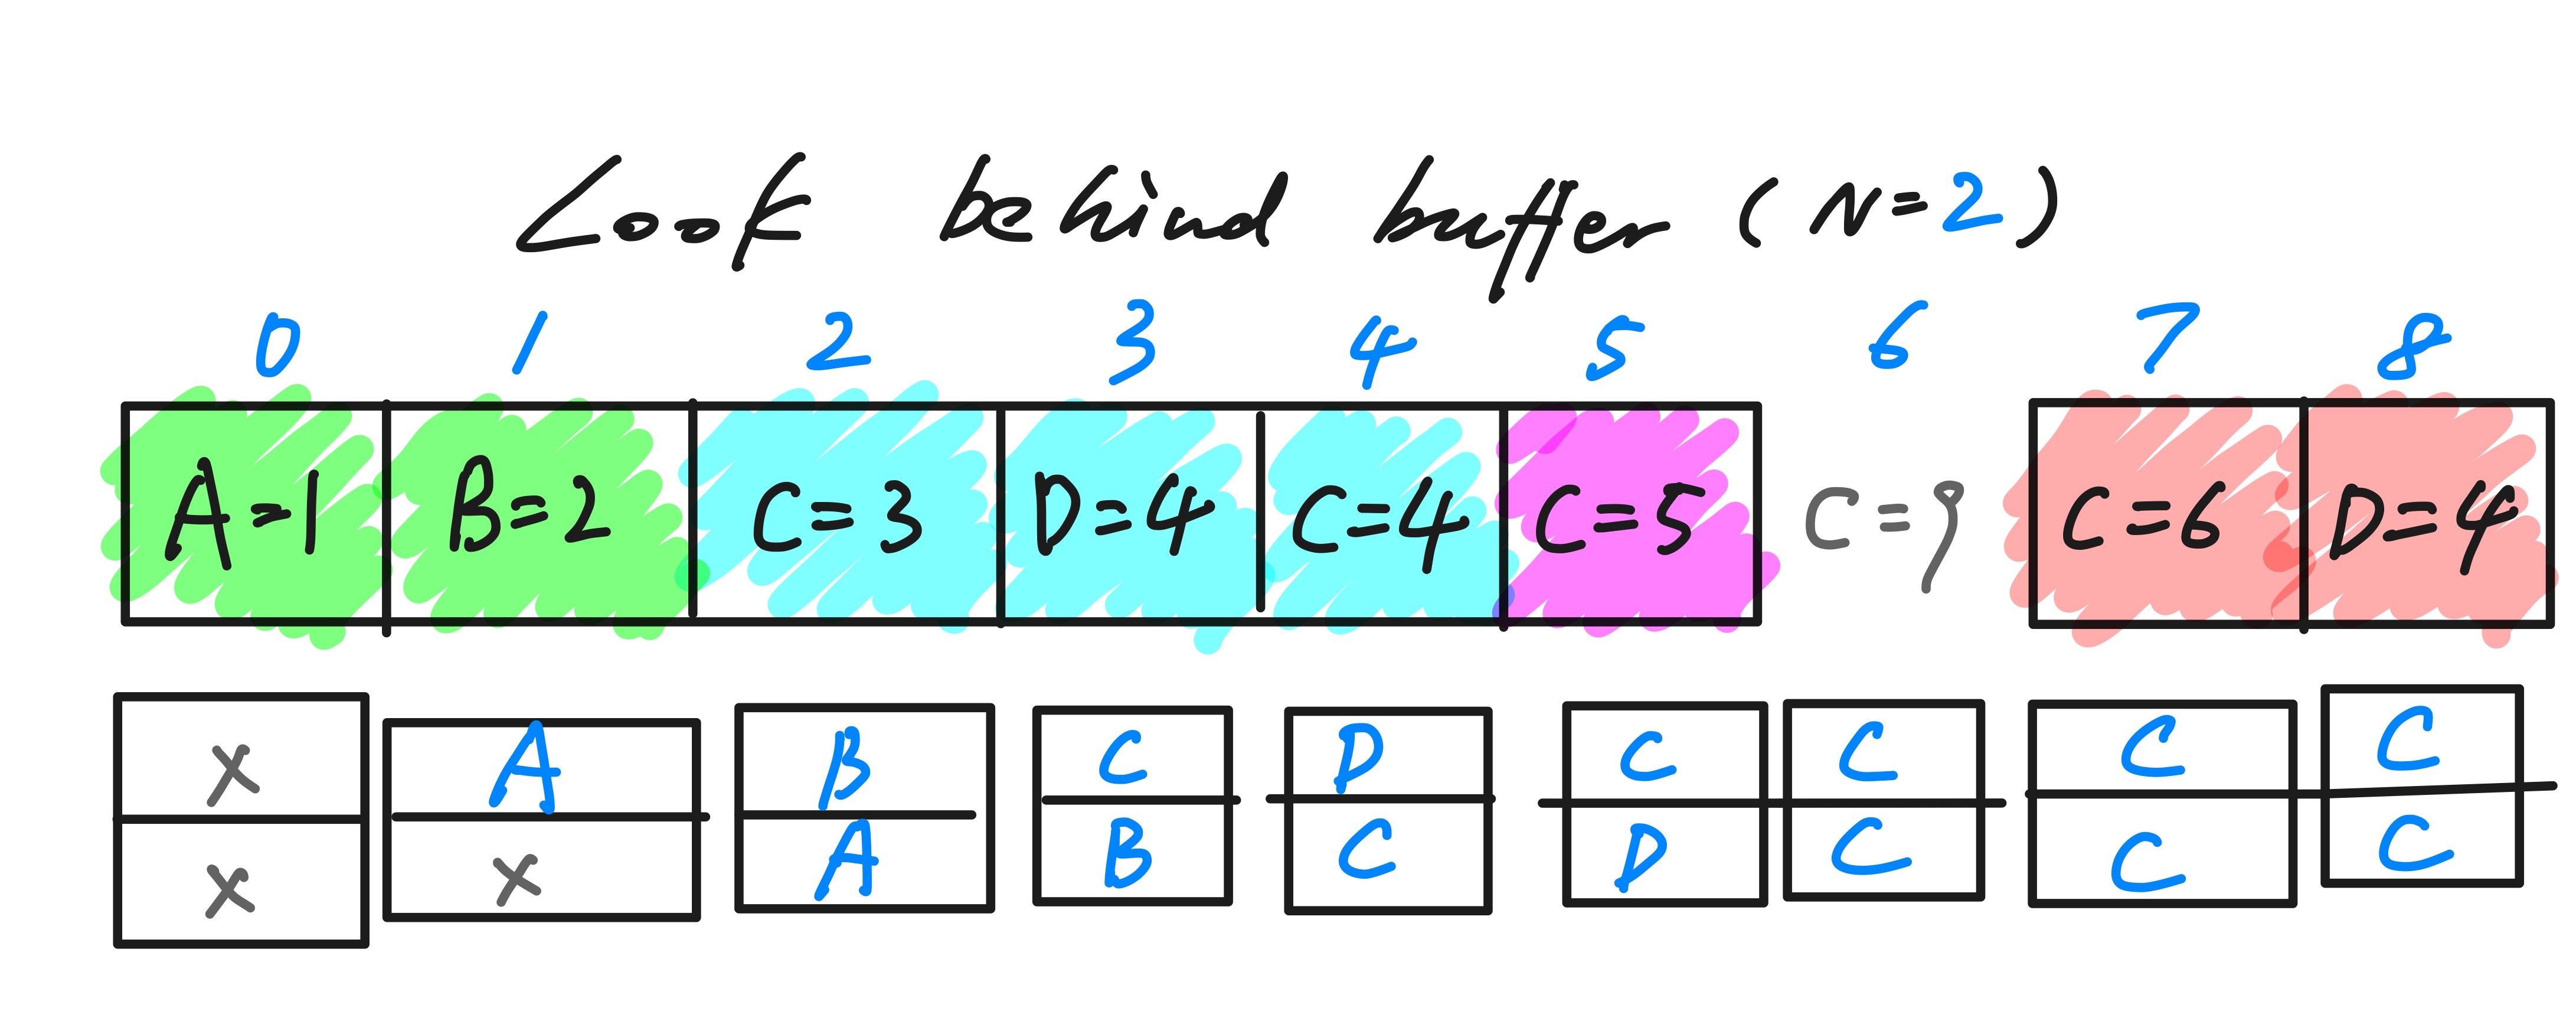 Look behind buffer (N=2)
0 1 2 3 4 5 6 7 8
A=1 B=2 C=3 D=4 C=4 C=5 C=9 C=6 D=4
x A B C D C C C C
x x A B C D C C C